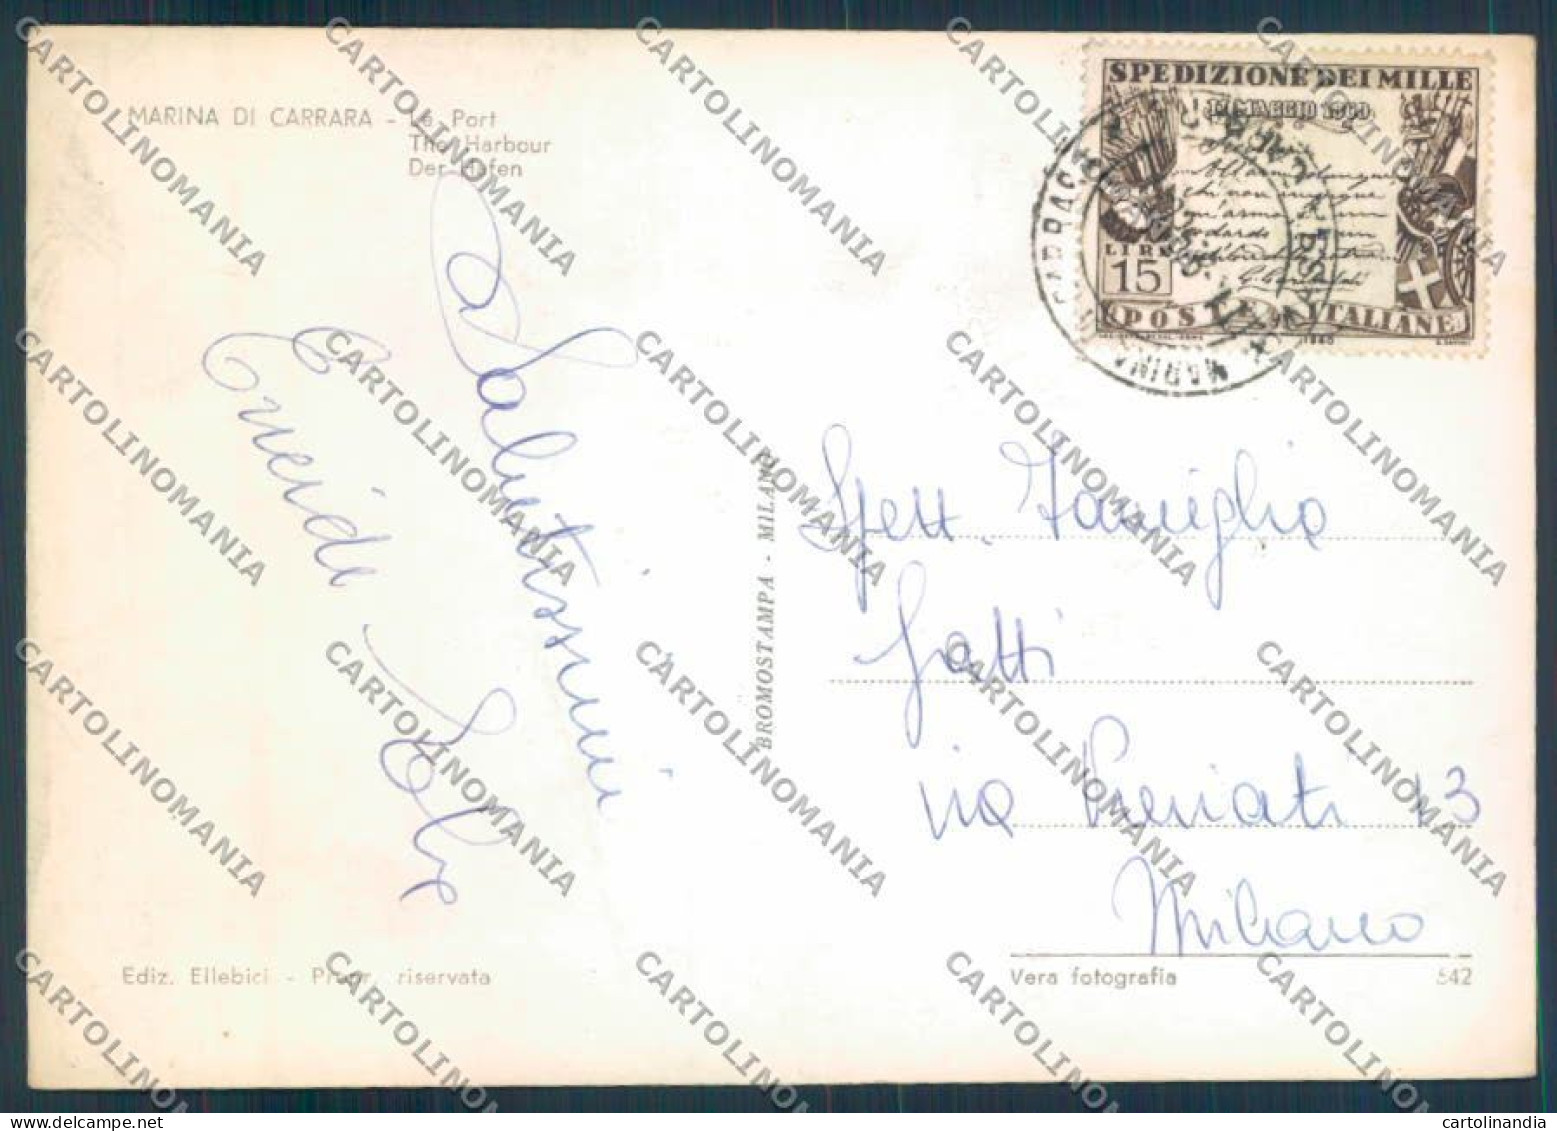 MARINA DI CARRARA - Le Port
The Harbour
Der Hafen
SPEDIZIONE DEI MILLE
MAGGIO 1960
LIRE
15
POSTE ITALIANE
1960
MARINA
CARRARA
Salutissimi
BROMOSTAMPA - MILANO
Spett. Famiglia
Gatti
via 13
Milano
Ediz. Ellebici - Propr. riservata
Vera fotografia
542
CARTOLINOMANIA
cartolinandia